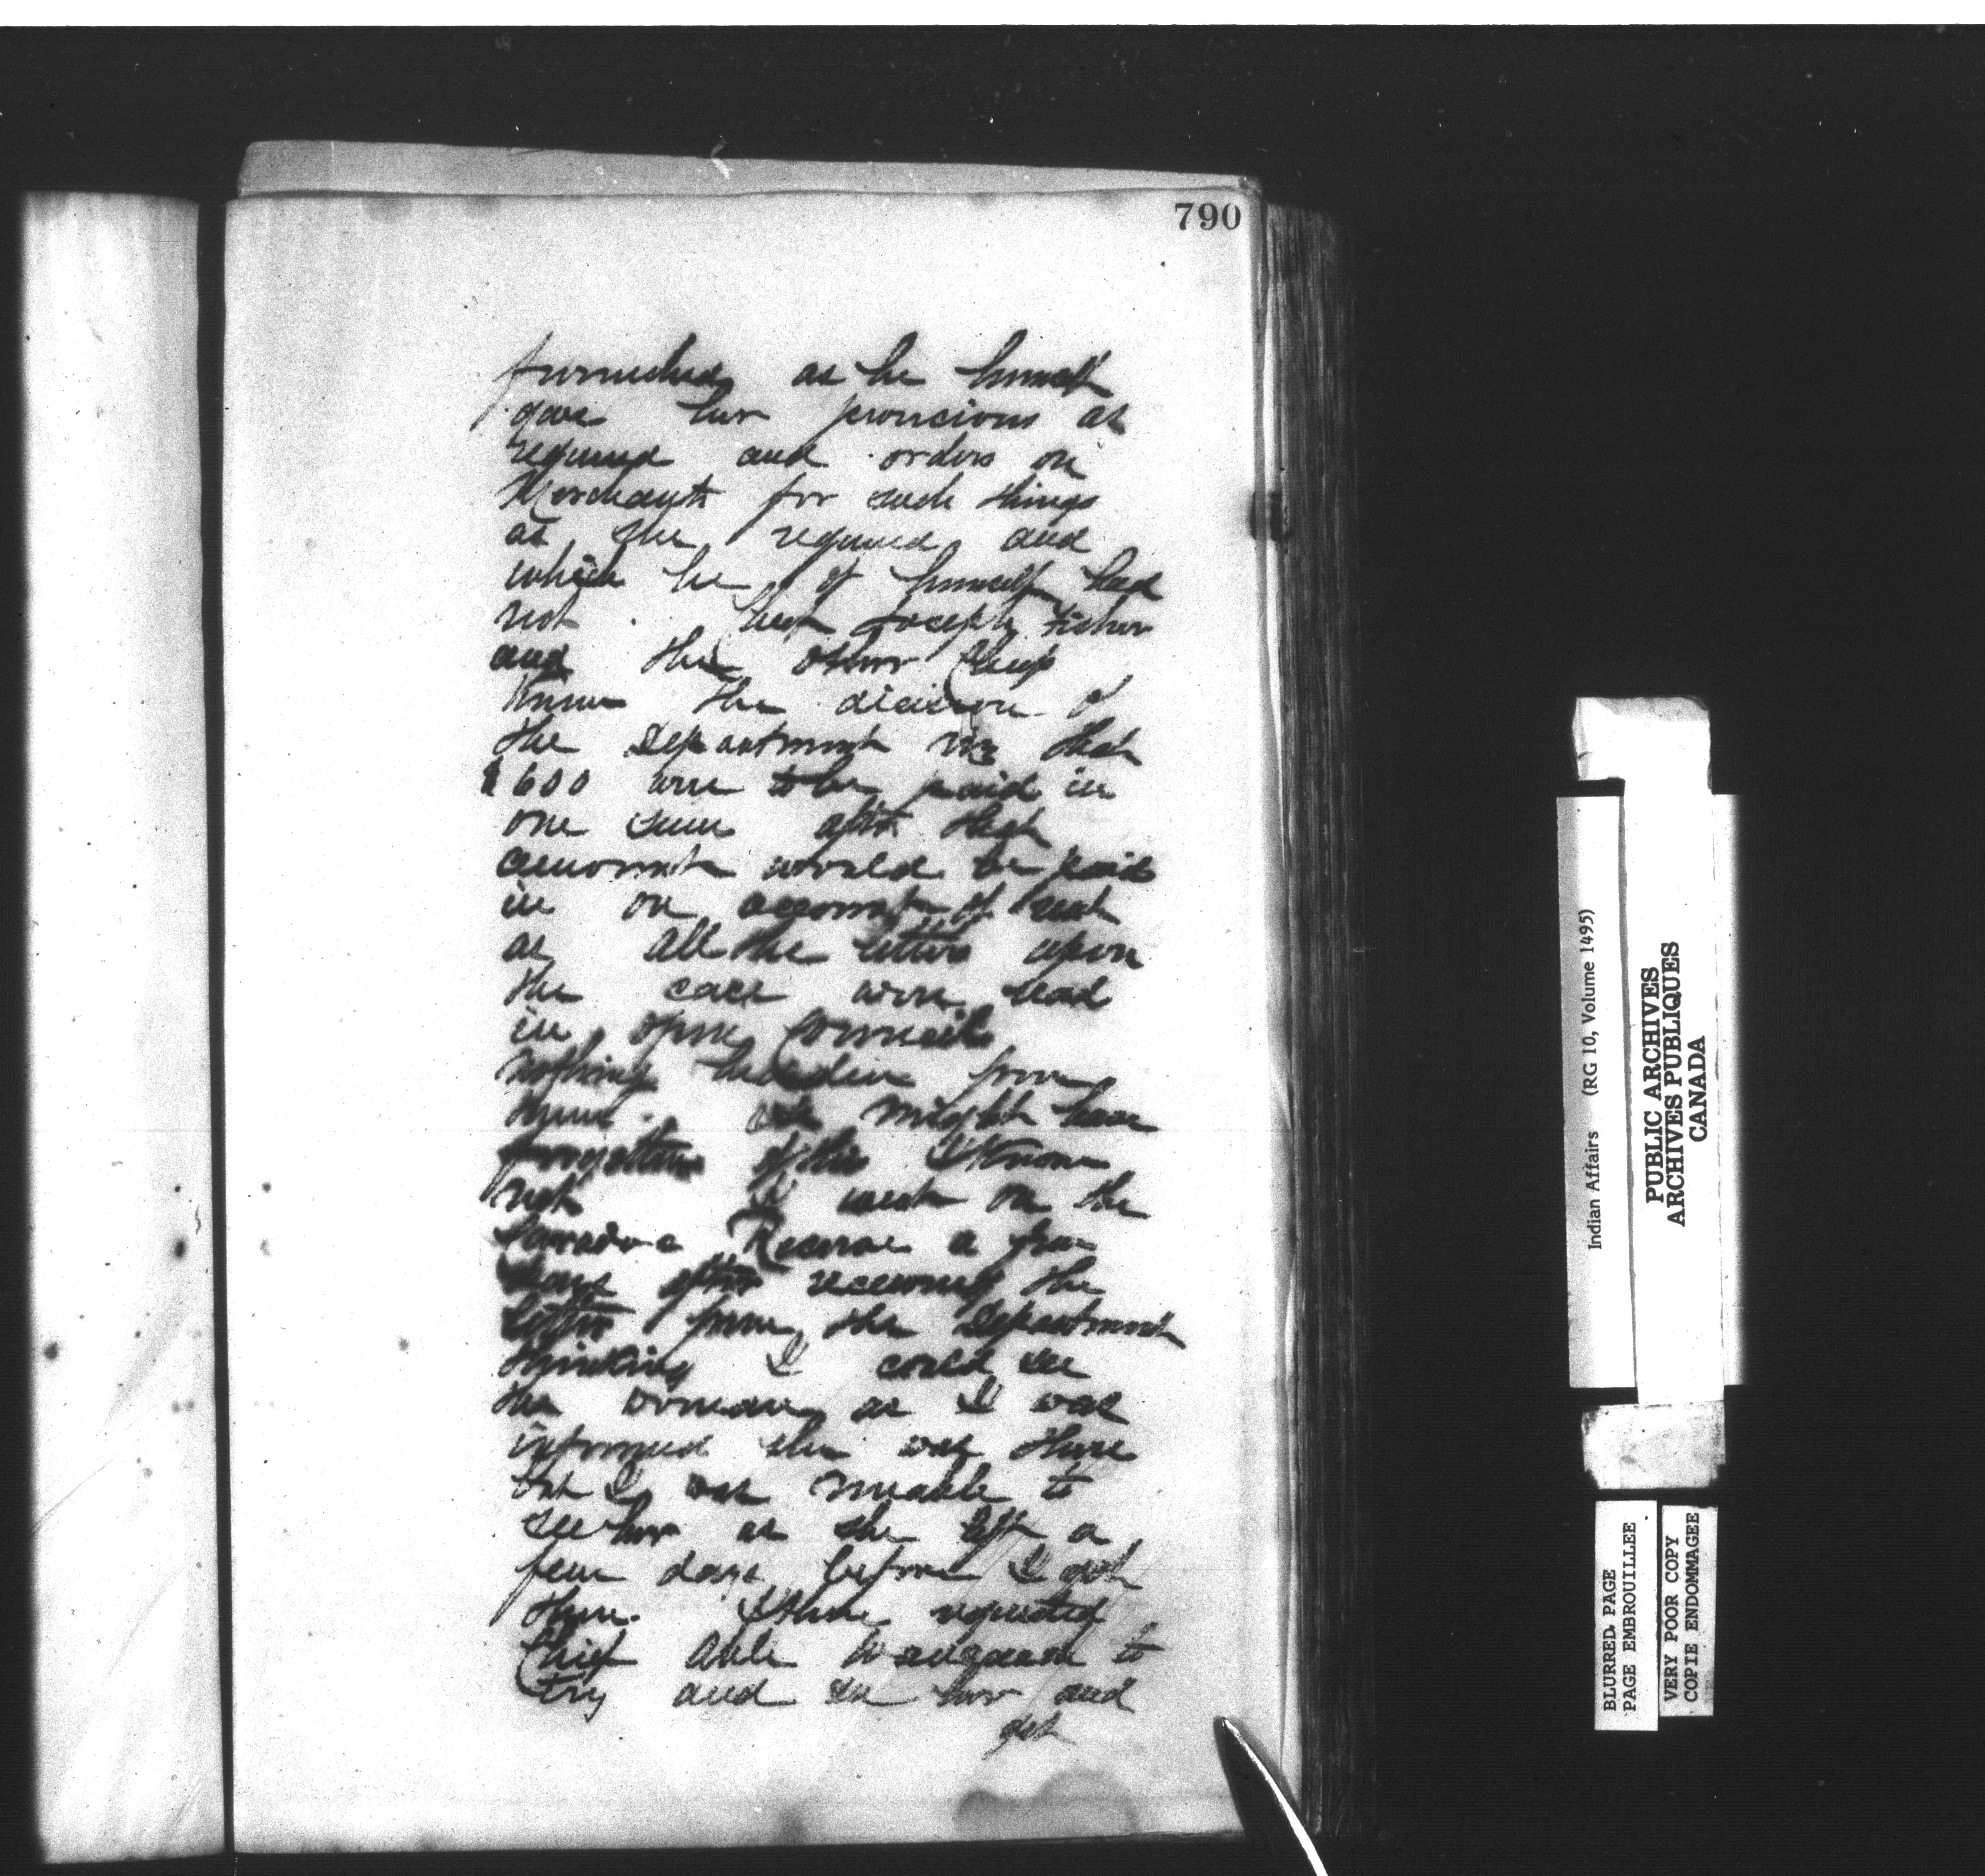 790
furnished as he himself
gave her provisions as
required and orders on
Merchants for such things
as she required and
which he of himself had
not Joseph Fisher
and the other Chiefs
knew the dicision of
the Department viz that
$600 were to be paid in
one sum after that
amount would be paid
in on account of rent
as all the letters upon
the case were read
in open Council
nothing hidden from
them. He might have
forgotten of this I know
not I went on the
Reserve a few
days after receiving the
letter from the Department
thinking I could see
the woman as I was
informed she was there
but I was unable to
see her as she left a
few days before I got
there. I then requested
Chief to
try and see her and
get
Indian Affairs (RG 10, Volume 1495)
PUBLIC ARCHIVES
ARCHIVES PUBLIQUES
CANADA
BLURRED PAGE
PAGE EMBROUILLEE
VERY POOR COPY
COPIE ENDOMMAGEE